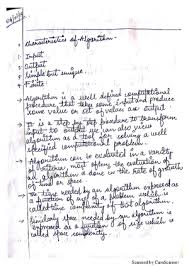 Characteristics of Algorithm -
Input
Output
Simple but unique
Finite
Algorithm is a well defined computational
procedure that take some input and produce
some value or set of values as output.
It is a step by step procedure to transform
input to output we can also view
algorithm as a tool for solving a well
specified computational problem.
Algorithm can be evaluated in a variety
of criteria most often the evaluation of
an algorithm is done in the rate of growth
of time or space
Time needed by an algorithm expressed as
a function of size of a problem is
called time complexity of algorithm.
Similarly space needed by an algorithm is
expressed as a function of size which is
called as space complexity.
Scanned by CamScanner